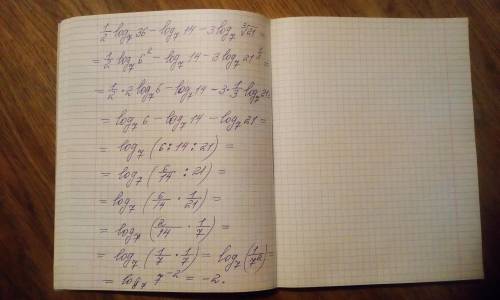 ½ log₇ 36 − log₇ 14 − 3 log₇ ∛21 =
= ½ log₇ 6² − log₇ 14 − 3 log₇ 21^⅓ =
= ½ · 2 log₇ 6 − log₇ 14 − 3 · ⅓ log₇ 21 =
= log₇ 6 − log₇ 14 − log₇ 21 =
= log₇ (6 : 14 : 21) =
= log₇ (6/14 : 21) =
= log₇ (6/14 · 1/21) =
= log₇ (2/14 · 1/7) =
= log₇ (1/7 · 1/7) = log₇ (1/7²) =
= log₇ 7⁻² = −2.